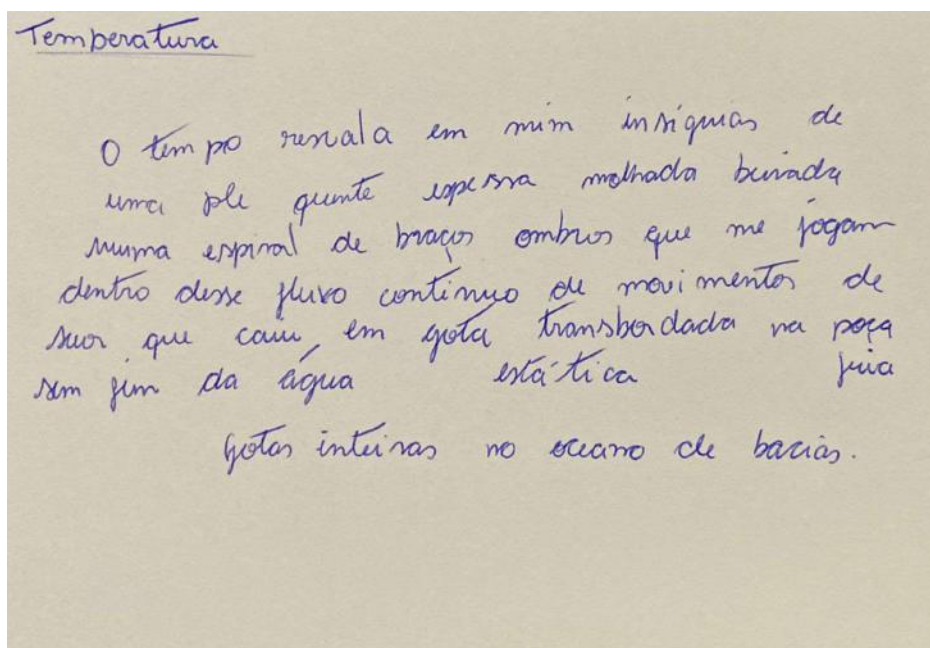 Temperatura
O tempo resvala em mim insígnias de
uma pele quente espessa molhada beirada
numa espiral de braços ombros que me jogam
dentro desse fluxo contínuo de movimentos de
suor que caiu em gota transbordada na poça
sem fim da água estática fria
Gotas inteiras no oceano de bacias.